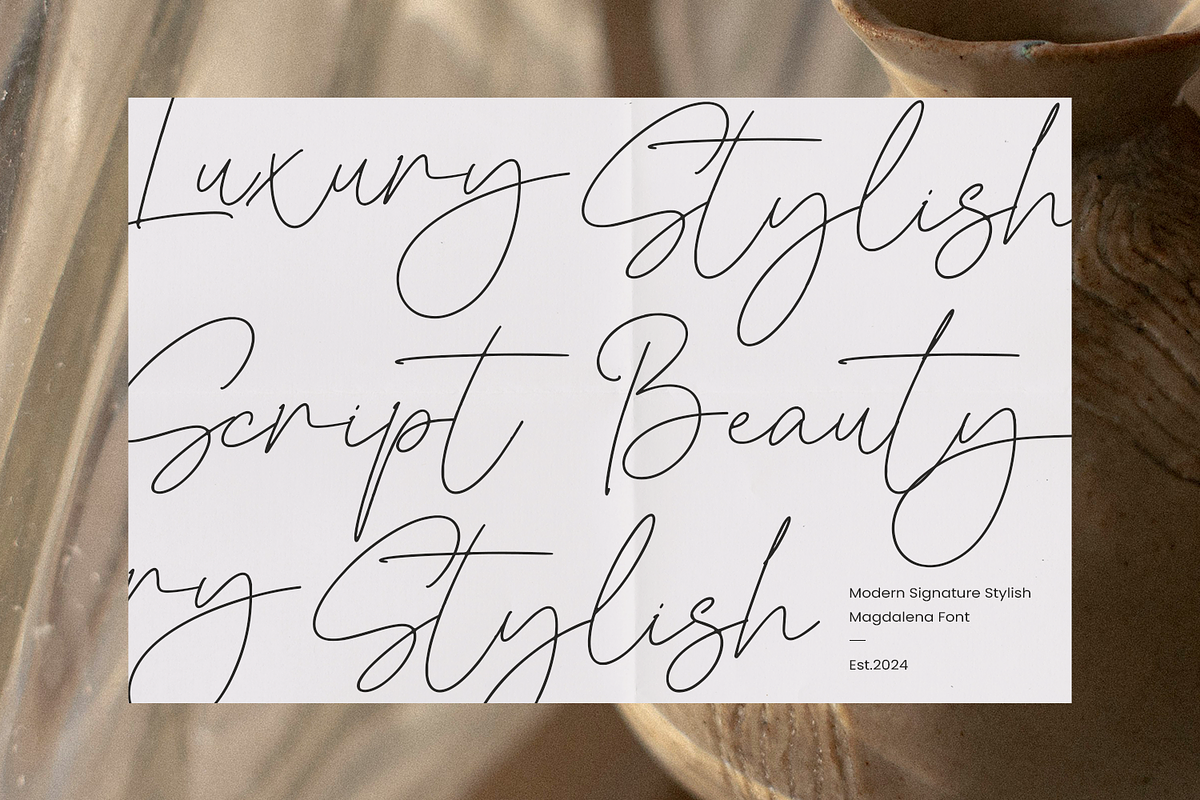 Luxury Stylish
Script Beauty
ry Stylish
Modern Signature Stylish
Magdalena Font
Est.2024